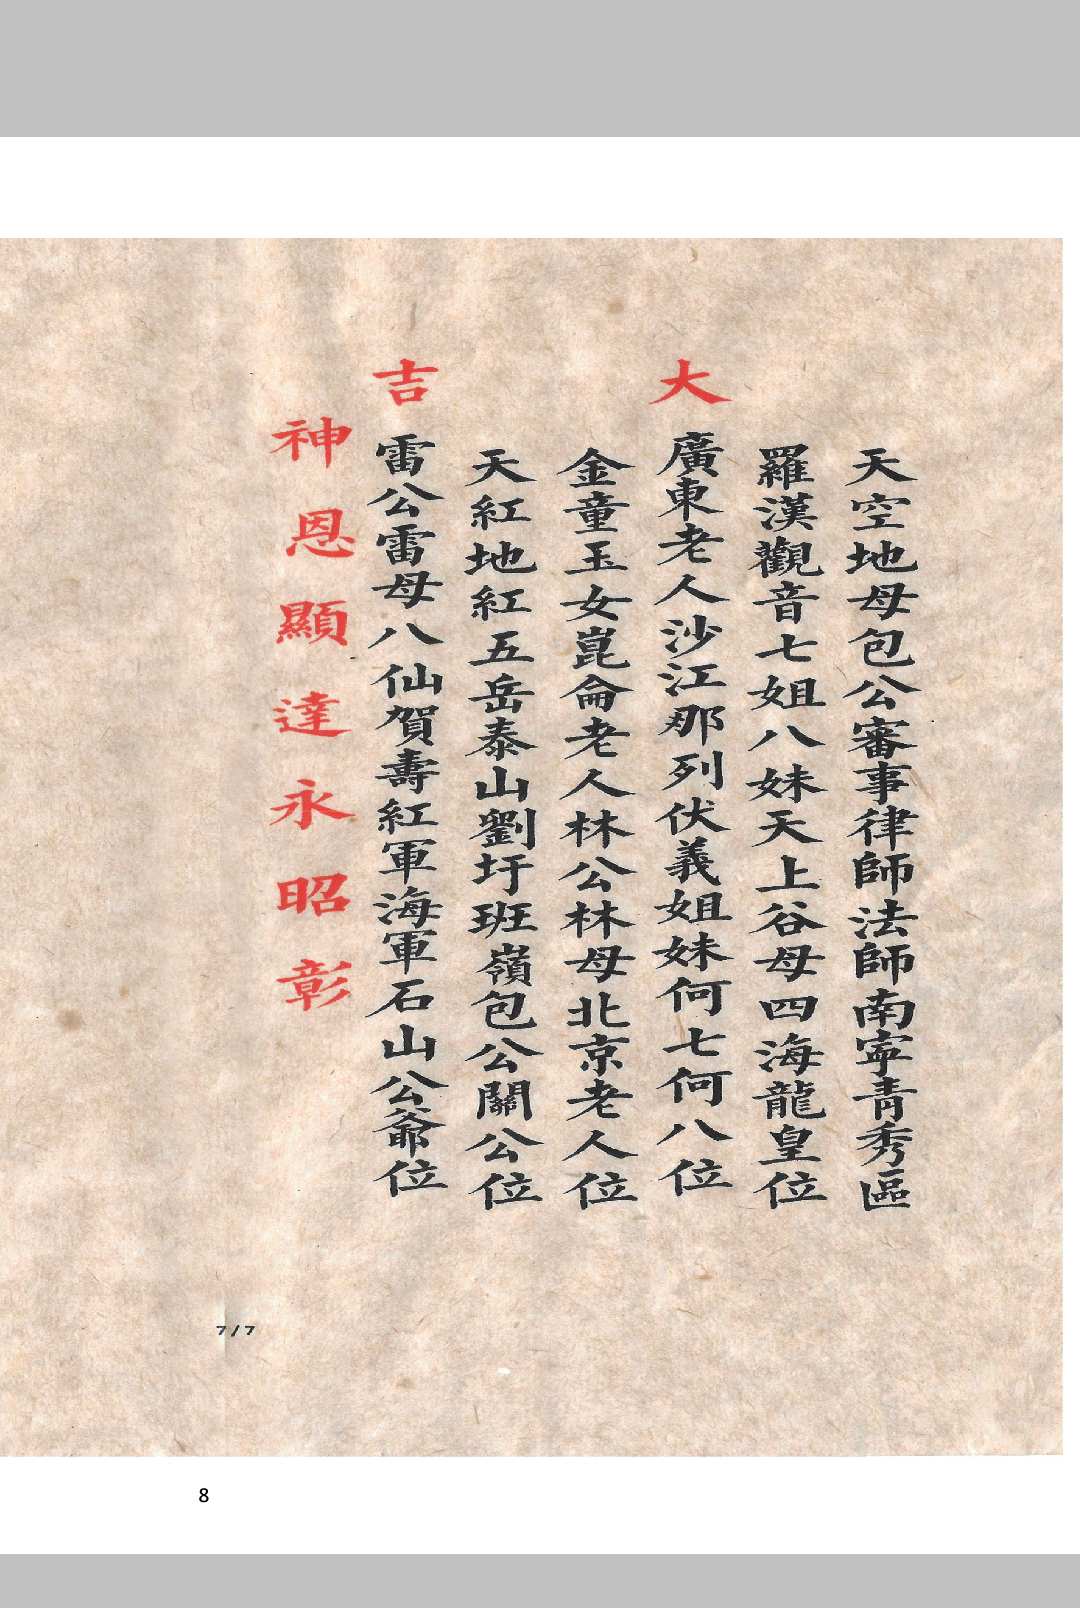 天空地母包公審事律師法師南寧青秀區
羅漢觀音七姐八妹天上谷母四海龍皇位
大
廣東老人沙江那列伏義姐妹何七何八位
金童玉女崑侖老人林公林母北京老人位
天紅地紅五岳泰山劉圩班嶺包公關公位
吉
雷公雷母八仙賀壽紅軍海軍石山公爺位
神恩顯達永昭彰
7/7
8